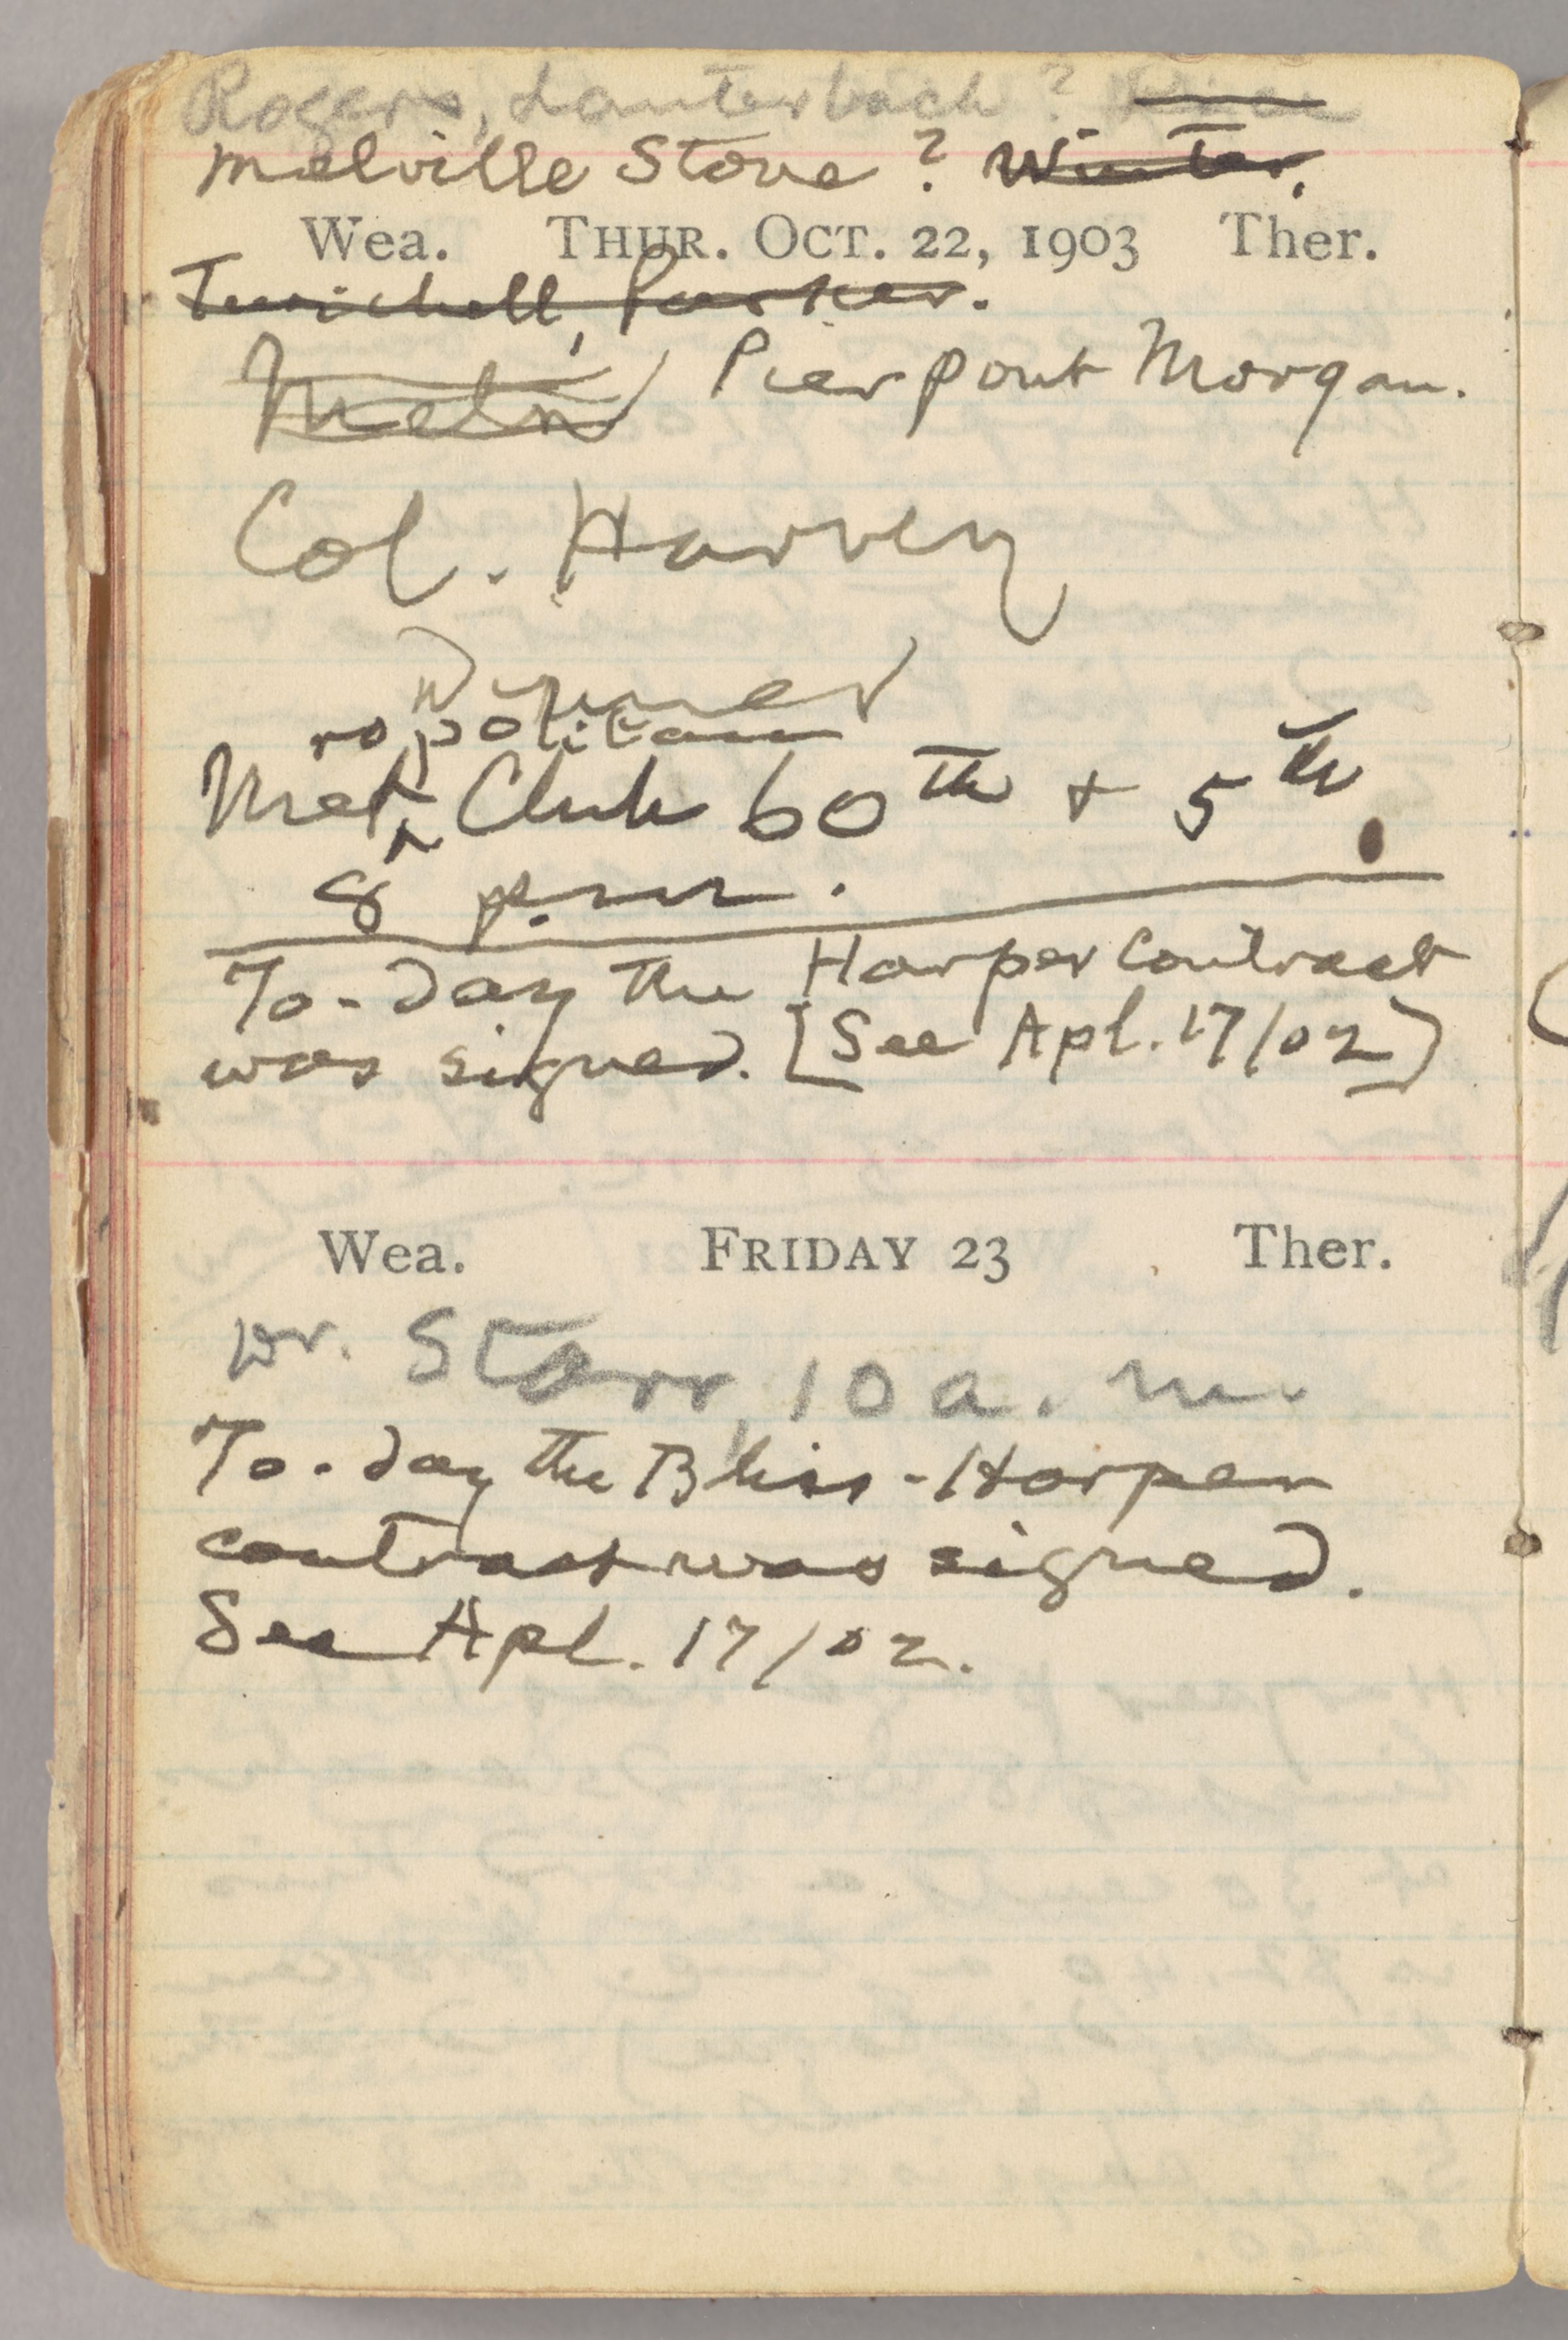 Rogers, Lauterbach? Rice
Melville Stone? Winter.
Wea. THUR. OCT. 22, 1903 Ther.
Twichell, Parker.
Metr Pierpont Morgan.
Col. Harvey
Dinner
ropolitan
Met Club 60th + 5th
8 p.m.
To-day the Harper Contract
was signed. [See Apl. 17/02]
Wea. FRIDAY 23 Ther.
Dr. Starr, 10 a.m.
To-day the Bliss-Harper
contract was signed.
See Apl. 17/02.